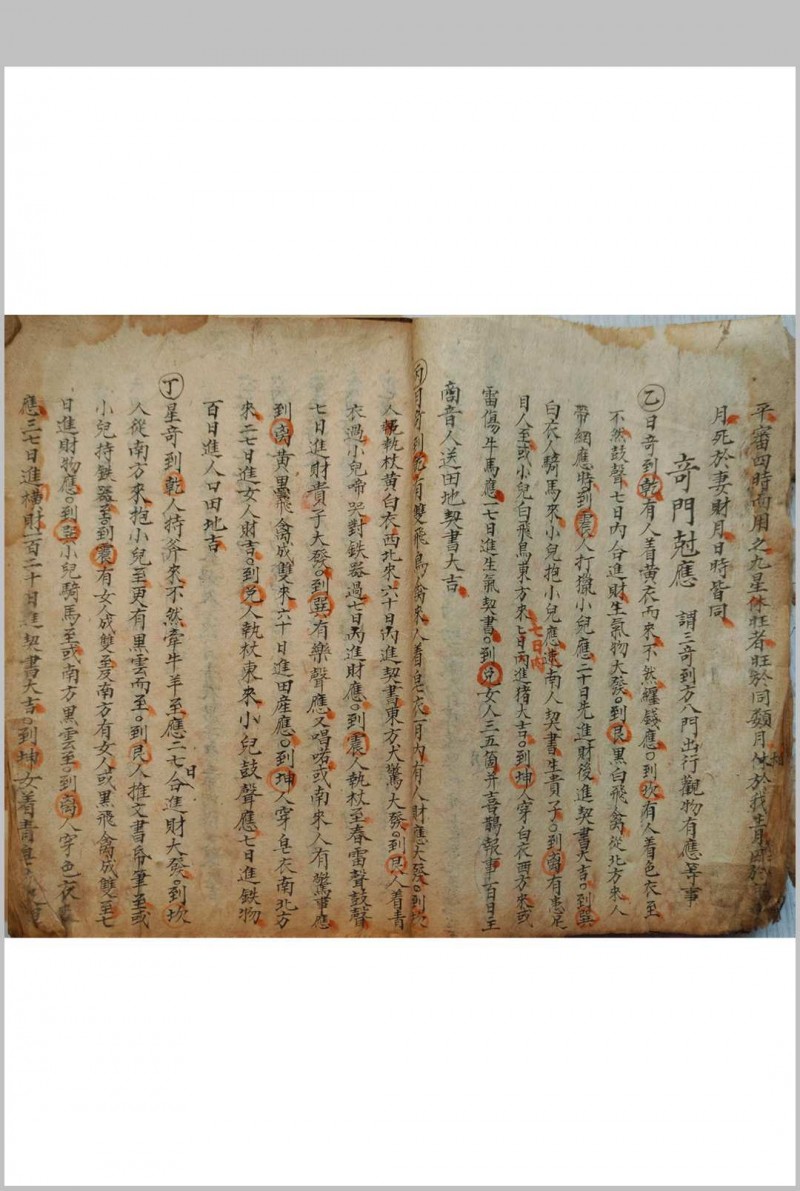 平審四時而用之九星休旺者旺於同類月休於我生月
月死於妻財月日時皆同
奇門尅應 謂三奇到方八門出行觀物有應等事
乙日奇到乾有人着黃衣而來不然纏錢應○到坎有人着色衣至
不然鼓聲七日內合進財生氣物大發○到艮黑白飛禽從北方來人
帶網應將到震人打獵小兒應二十日先進財後進契書大吉○到巽
白衣人騎馬來小兒抱小兒應東南人契書生貴子○到离有患足
目人至或小兒白飛鳥東方來七日內進猪大吉○到坤人穿白衣西方來或
七日內
雷傷牛馬應一七日進生氣契書○到兌女人三五箇并喜鵲報事一百日至
商音人送田地契書大吉
丙月奇到乾有雙飛鳥禽來人着皂衣一月內有人財應大發○到坎
人執杖黃白衣西北來六十日內進契書東方犬驚大發○到艮人着青
衣過小兒啼哭對鉄器過七日丙進財應○到震人執杖至春雷聲鼓聲
七日進財貴子大發○到巽有樂聲應又唱喏或南來人有驚事應
到离黃黑飛禽成雙來六十日進田産應○到坤人穿皂衣南北方
來二七日進女人財吉○到兌人執杖東來小兒鼓聲應七日進鉄物
百日進人口田地吉
丁星奇到乾人持斧來不然牽牛羊至應二七日合進財大發○到坎
人從南方來抱小兒至更有黑雲而至○到艮人推文書帋筆至或
小兒持鉄器至○到震有女人成雙至及南方有女人或黑飛禽成雙至七
日進財物應○到巽小兒騎馬至或南方黑雲至○到离人穿色衣
應三七日進橫財一百二十日進契書大吉○到坤女着青皂